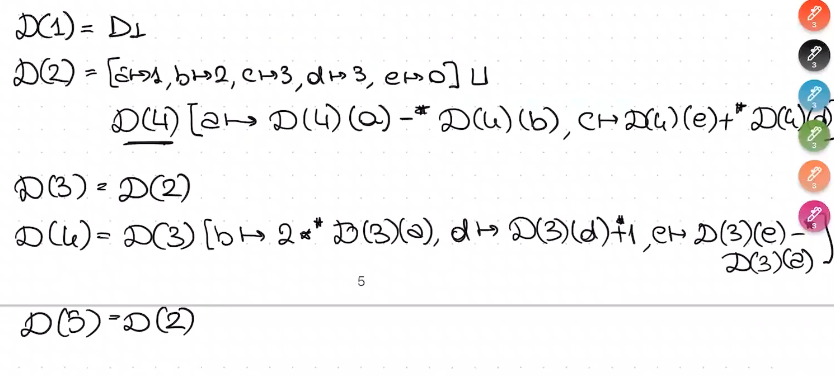 D(1) = D⊥
D(2) = [a↦1, b↦2, c↦3, d↦3, e↦0] ⊔
D(4) [a ↦ D(4)(a) -* D(4)(b), c ↦ D(4)(e) +* D(4)(d)]
D(3) = D(2)
D(4) = D(3) [b ↦ 2 ** D(3)(a), d ↦ D(3)(d) +* 1, e ↦ D(3)(e) -
D(3)(a)]
5
D(5) = D(2)
3
3
3
3
3
3